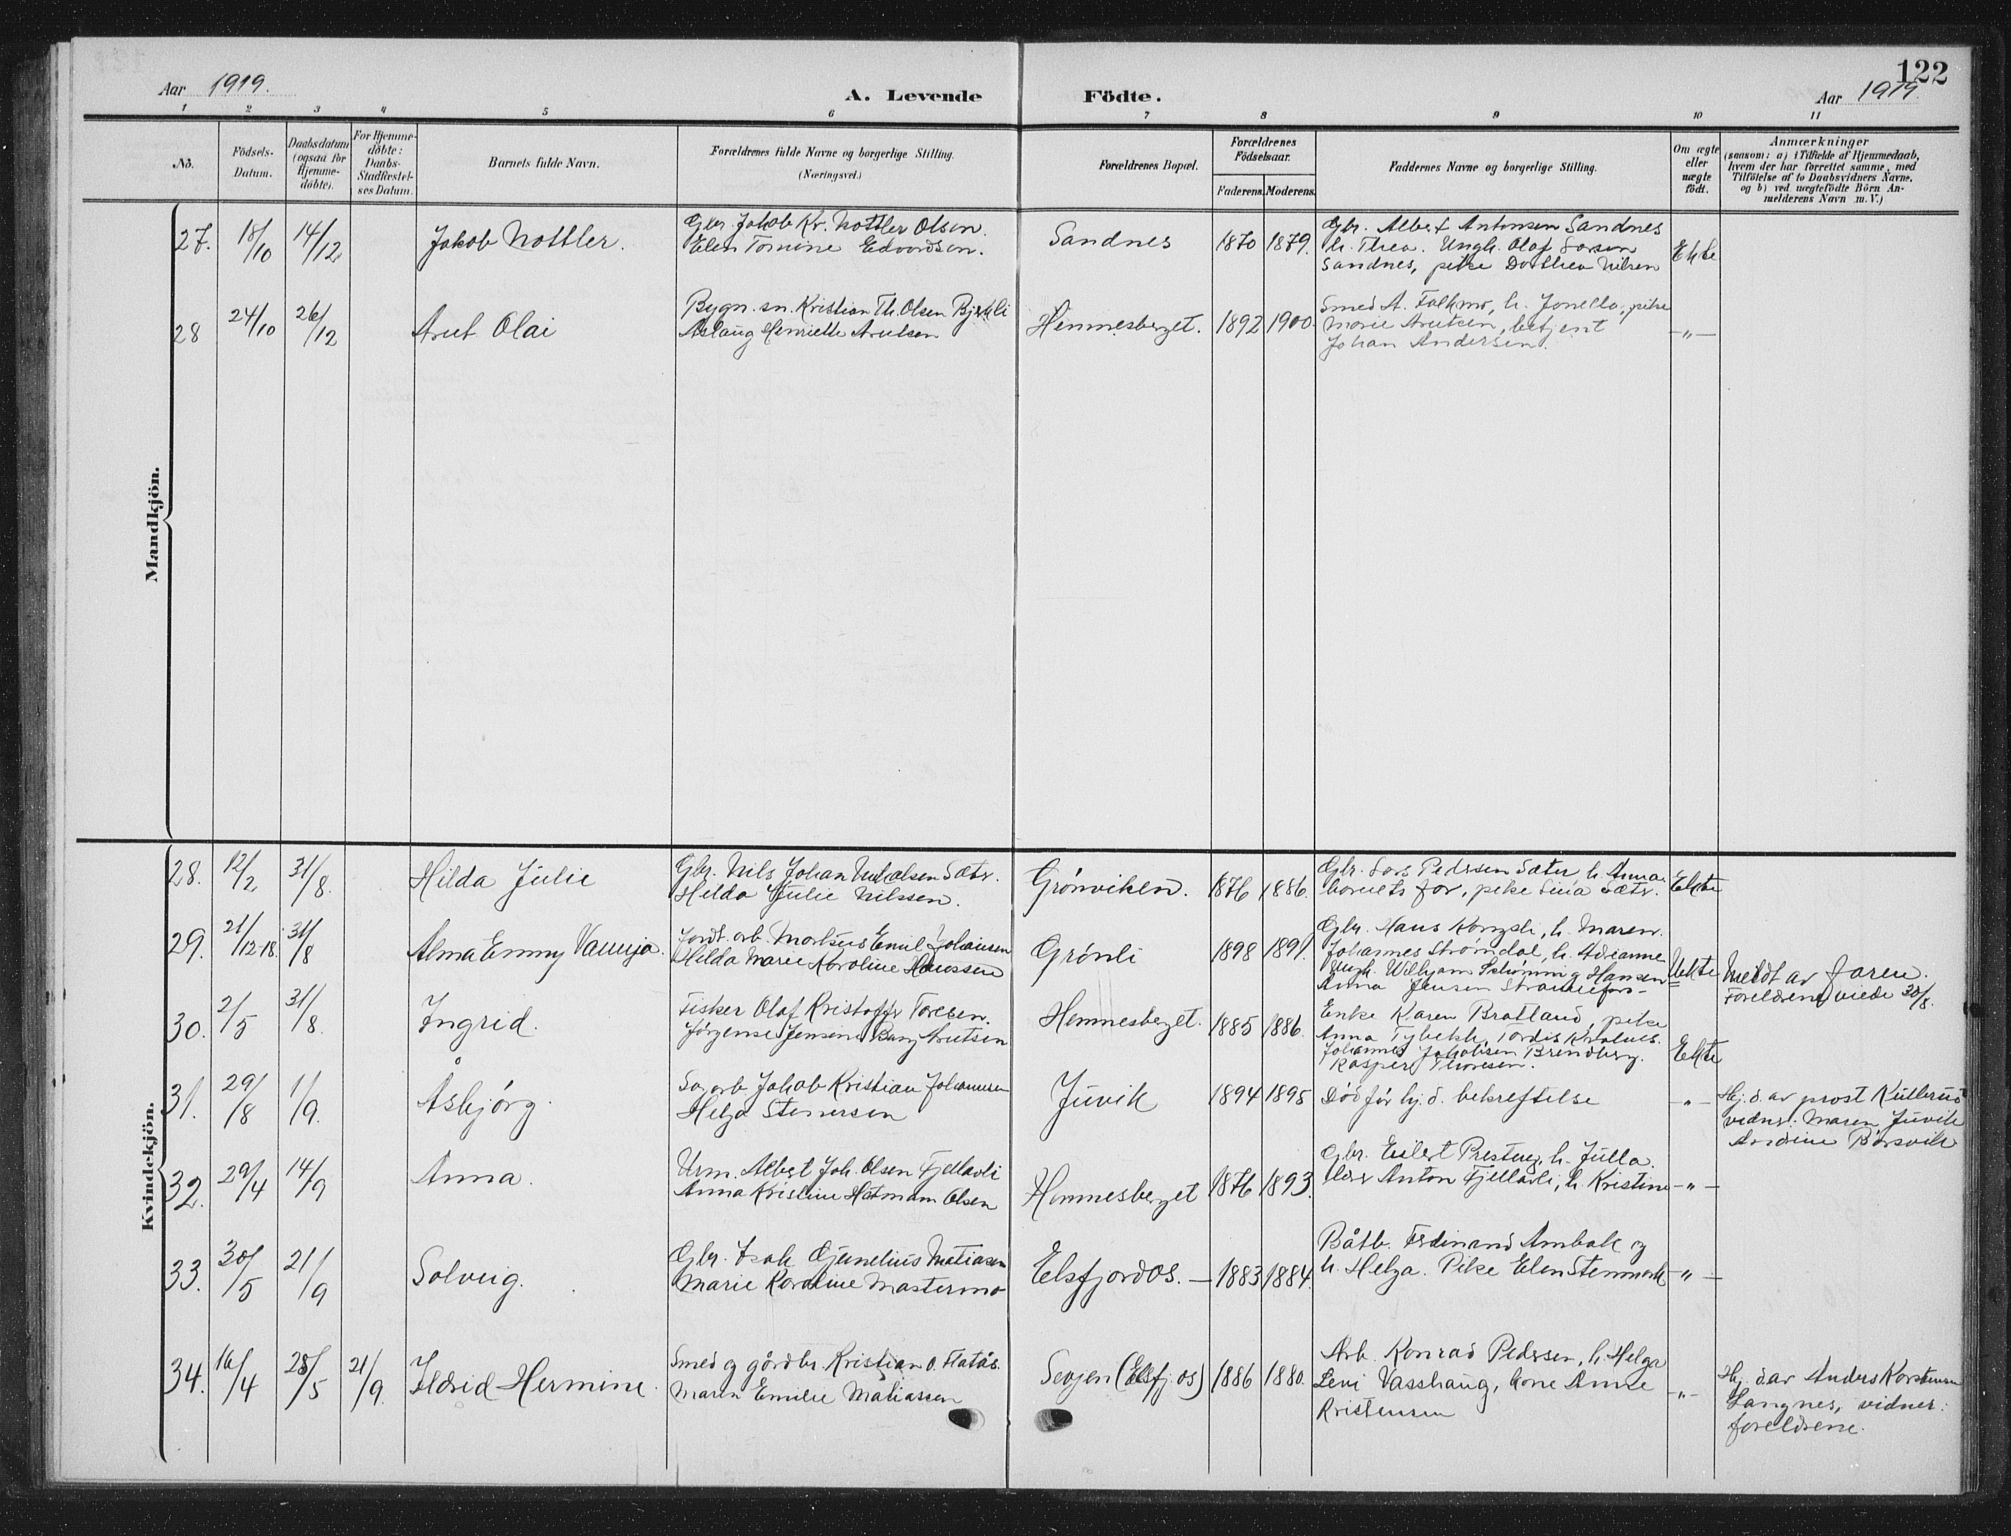 122
Aar 1919.
A. Levende Födte.
Aar 1919
1 2 3 4 5 6 7 8 9 10 11
No.
Födsels-
Datum.
Daabsdatum
(ogsaa for
Hjemme-
døbte).
For Hjemme-
døbte:
Daabs-
Stadfæstel-
ses Datum.
Barnets fulde Navn.
Forældrenes fulde Navne og borgerlige Stilling.
(Næringsvei.)
Forældrenes Bopæl.
Forældrenes
Födselsaar.
Faderens. Moderens.
Faddernes Navne og borgerlige Stilling.
Om ægte
eller
uægte
födt.
Anmærkninger
(saasom: a) i Tilfælde af Hjemmedaab,
hvem der har forrettet samme, med
Tilföielse af to Daabsvidners Navne,
og b) ved uægtefödte Börn An-
melderens Navn m. V.)
Mandkjön.
27. 18/10 14/12 Jakob Nottler.
Gbr. Jakob Kr. Nottler Olsen.
Elen Tomine Edvardsen.
Sandnes 1870 1879.
Gbr. Albert Antonsen Sandnes
h. Thea. Ungk. Olaf Larsen
Sandnes, pike Dorthea Nilsen
Ekte
28 24/10 26/12 Arnt Olai
Bygn. sn. Kristian Th. Olsen Bjerkli
Aslaug Henriette Arntsen
Hemnesberget. 1892 1900.
Smed A. Falkmo, h. Jonetta, pike
Marie Arntsen, betjent
Johan Andersen.
—„—
Kvindekjön.
28. 12/2 31/8. Hilda Julie
Gbr. Nils Johan Nilsen Sæter.
Hilda Julie Nilssen.
Grønviken. 1876 1886.
Gbr. Lars Pedersen Sæter, h. Anna
barnets far, pike Lina Sæter.
Ekte
29. 21/12 18. 31/8 Alma Emmy Vannja.
Jordb. arb. Markus Emil Johansen
Hilda Marie Karoline Hanssen
Grønli 1898 1891.
Gbr. Hans h. Maren.
Johannes Strømdal, h. Adrianne
Ungk. Wilhjam Schønning Hansen
Anna Jensen
Uekte
Meldt av faren.
Foreldrene viede 30/8.
30. 2/5 31/8. Ingrid.
Fisker Olaf Kristoffer Toresen.
Jørgense Jensine Berg Arntsen
Hemnesberget. 1885 1886.
Enke Karen Bratland, pike
Anna Tybekk, Tordis
Johannes Jakobsen Brendberg.
Kasper Thoresen.
Ekte
31. 29/8 1/9. Åsbjørg.
Sagarb Jakob Kristian Johannesen
Helga Steinersen
Juvik 1894 1895
Død før hj. d. bekreftelse
—„—
Hj. d. av prost Kullerud
vidner: Maren Juvik
Andine Børsvik
32. 29/4 14/9 Anna.
Urm. Albert Joh. Olsen Fjellavli
Anna Kristine Hatmann Olsen
Hemnesberget 1876 1893.
Gbr. Eilert Presteng, h. Julla.
Anton Fjellavli, h. Kristine
—„—
33. 30/5 21/9 Solveig.
Gbr. Isak Cornelius Matiasen
Marie Karoline Mastermo
Elsfjordos. — 1883 1884.
Båtb. Ferdinand Ambak og
h. Helga. Pike Elen Stenmark
—„—
34. 16/4 25/5 21/9. Ildrid Hermine.
Smed og gårdbr. Kristian O. Flatås.
Maren Emilie Matiassen
Sevjen (Elsfj. os) 1886 1880.
Arb. Konrad Pedersen, h. Helga
Levi Vasshaug, kone Anne
Kristensen
—„—
Hj. d. av Anders Karstensen
Langnes, vidner:
foreldrene.